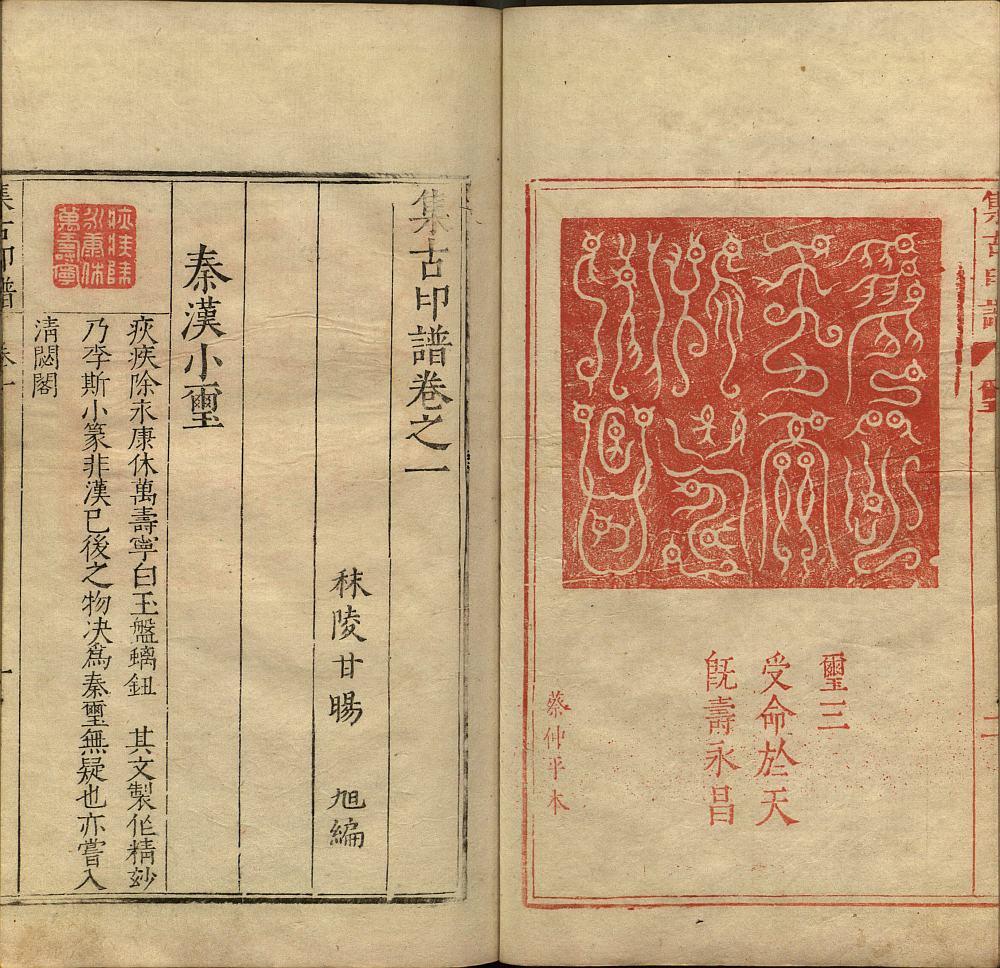 集古印譜
璽
二
璽三
受命於天
既壽永昌
蔡仲平本
集古印譜卷之一
秣陵甘暘 旭編
秦漢小璽
疢疾除永康休萬壽寧
疢疾除永康休萬壽寧白玉盤螭鈕 其文製作精妙
乃李斯小篆非漢已後之物決爲秦璽無疑也亦嘗入
清閟閣
集古印譜
卷一
一